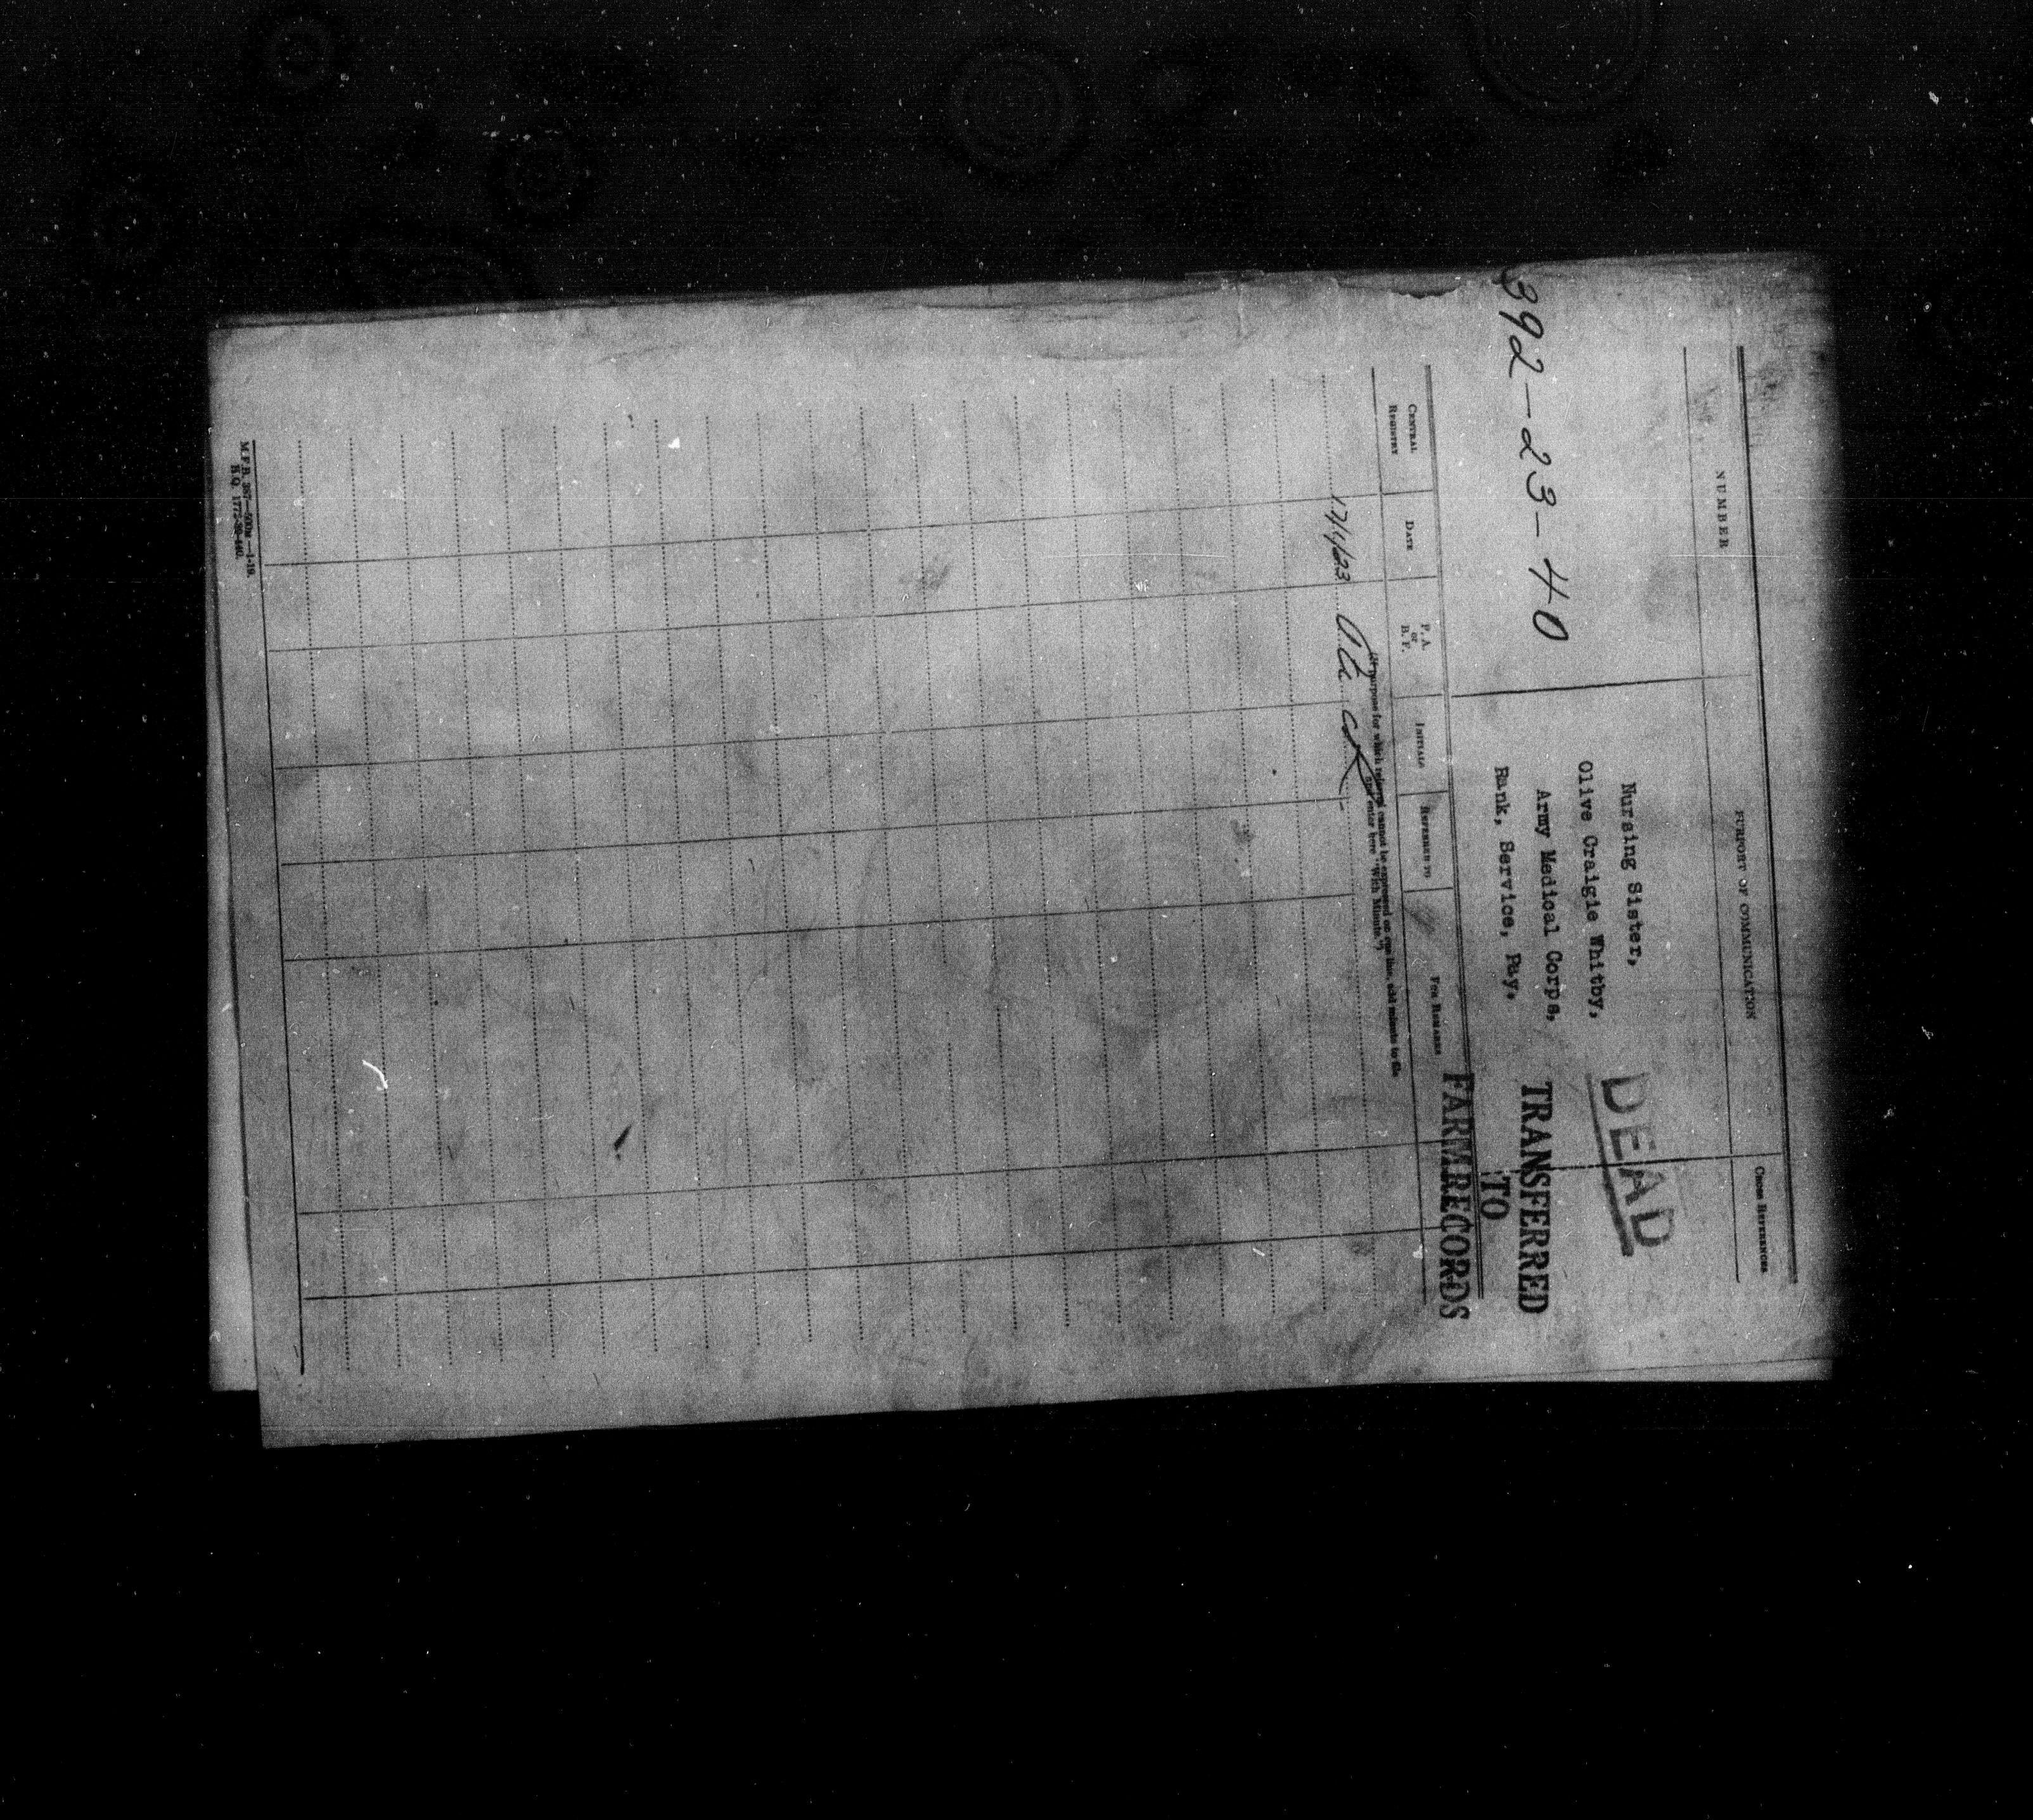 NUMBER
PURPORT OF COMMUNICATION
CROSS REFERENCES
392-23-40
Nursing Sister,
Olive Craigie Whitby,
Army Medical Corps,
Rank, Service, Pay.
DEAD
TRANSFERRED
TO
FARM RECORDS
CENTRAL REGISTRY
DATE
P. A. or B. F.
INITIALS
REFERRED TO
FOR REMARKS
(If purpose for which referred cannot be expressed on one line, add minute to file
and enter here "With Minute.")
17/1/23
M.F.B. 387—500m—1-19.
H.Q. 1772-39-440.